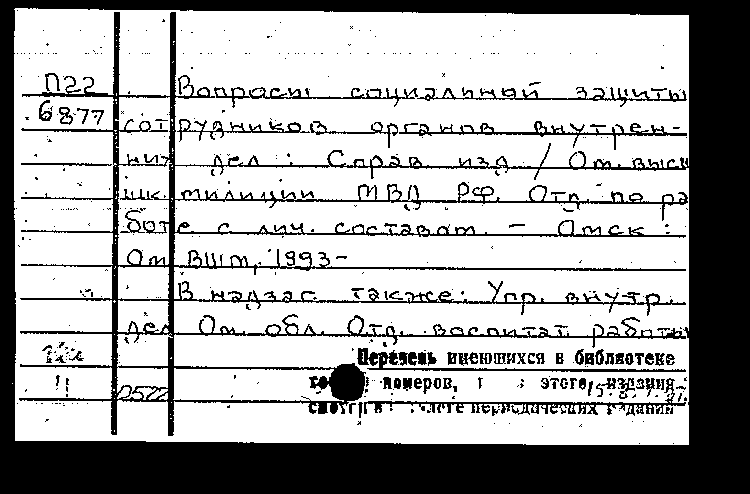 П22 Вопросы социальной защиты
6877 сотрудников органов внутрен-
них дел : Справ. изд. / Ом. высш.
шк. милиции МВД РФ. Отд. по ра
боте с лич. составом. – Омск :
Ом ВШМ, 1993-
В надзаг. также: Упр. внутр.
дел Ом. обл. Отд. воспитат. работы
Перечень имеющихся в библиотеке
номеров, этого издания
11 0522
периодических изданий